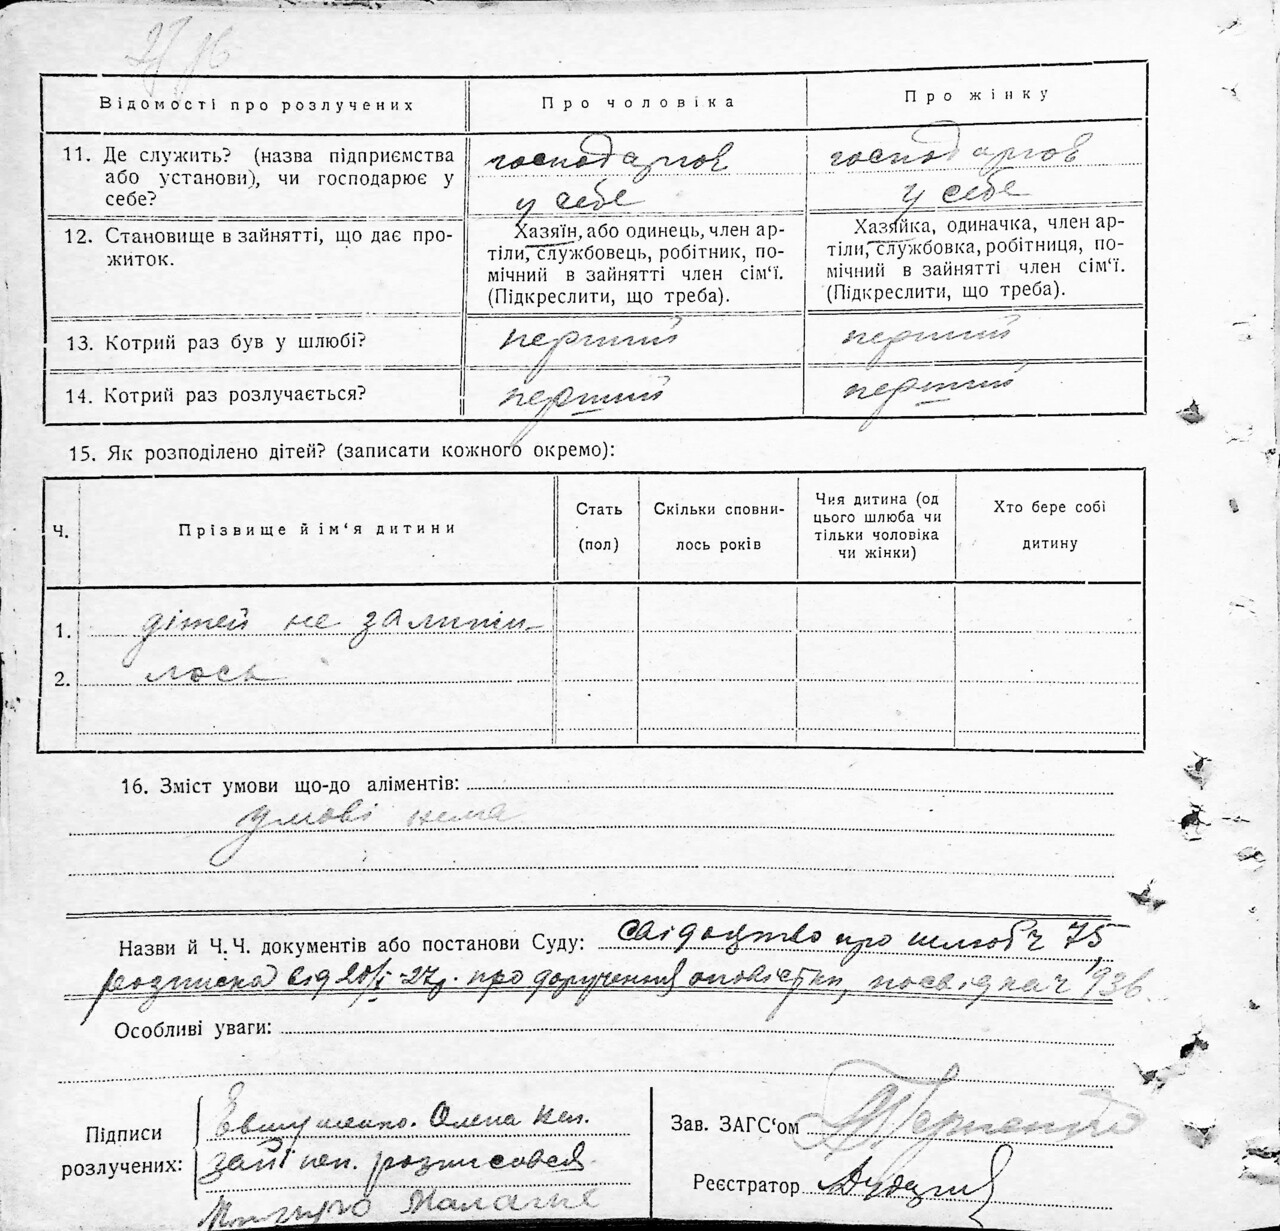 Відомості про розлучених
Про чоловіка
Про жінку
11. Де служить? (назва підприємства
або установи), чи господарює у
себе?
господарює
у себе
господарює
у себе
12. Становище в зайнятті, що дає про-
житок.
Хазяїн, або одинець, член ар-
тіли, службовець, робітник, по-
мічний в зайнятті член сім‘ї.
(Підкреслити, що треба).
Хазяйка, одиначка, член ар-
тіли, службовка, робітниця, по-
мічний в зайнятті член сім‘ї.
(Підкреслити, що треба).
13. Котрий раз був у шлюбі?
перший
перший
14. Котрий раз розлучається?
перший
перший
15. Як розподілено дітей? (записати кожного окремо):
Ч.
Прізвище й ім‘я дитини
Стать
(пол)
Скільки сповни-
лось років
Чия дитина (од
цього шлюба чи
тільки чоловіка
чи жінки)
Хто бере собі
дитину
1. дітей не залиши-
2. лось
16. Зміст умови що-до аліментів:
умові нема
Назви й Ч.Ч. документів або постанови Суду: свідоцтво про шлюб ч 75,
розписка від про доручення оповістки, посвідка ч 936
Особливі уваги:
Підписи
розлучених:
Евтушенко. Олена неп.
за неї неп. розписався
Малашка
Зав. ЗАГС‘ом
Реєстратор